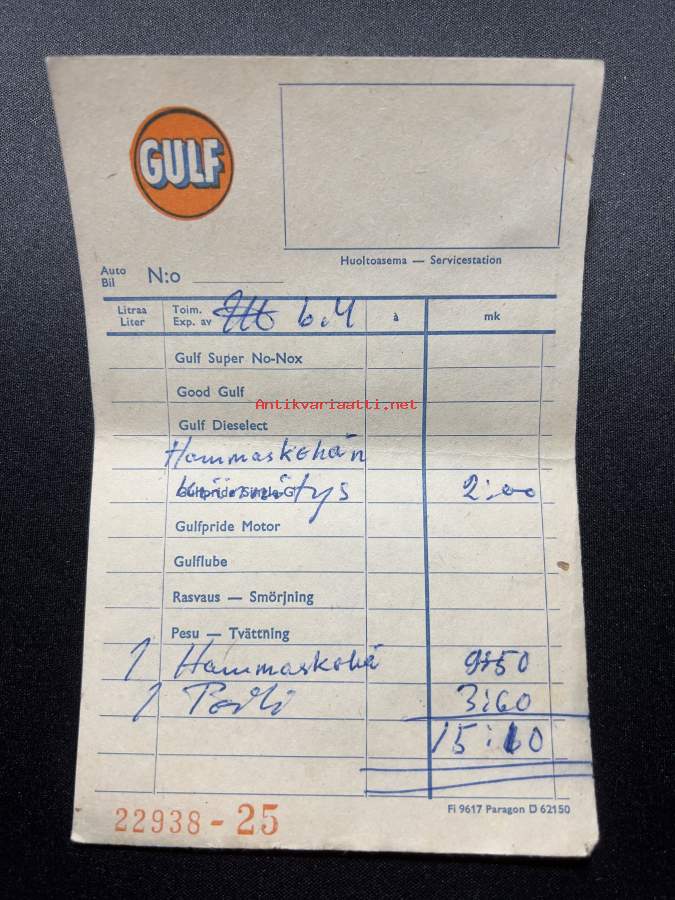 GULF
Huoltoasema — Servicestation
Auto
Bil
N:o
Litraa
Liter
Toim.
Exp. av
6.4
à
mk
Gulf Super No-Nox
Good Gulf
Antikvariaatti.net
Gulf Dieselect
Hammaskehän
Gulfpride Single-G
kiinnitys 2:00
Gulfpride Motor
Gulflube
Rasvaus — Smörjning
Pesu — Tvättning
1 Hammaskehä 9:50
1 3:60
15:10
22938 - 25
Fi 9617 Paragon D 62150